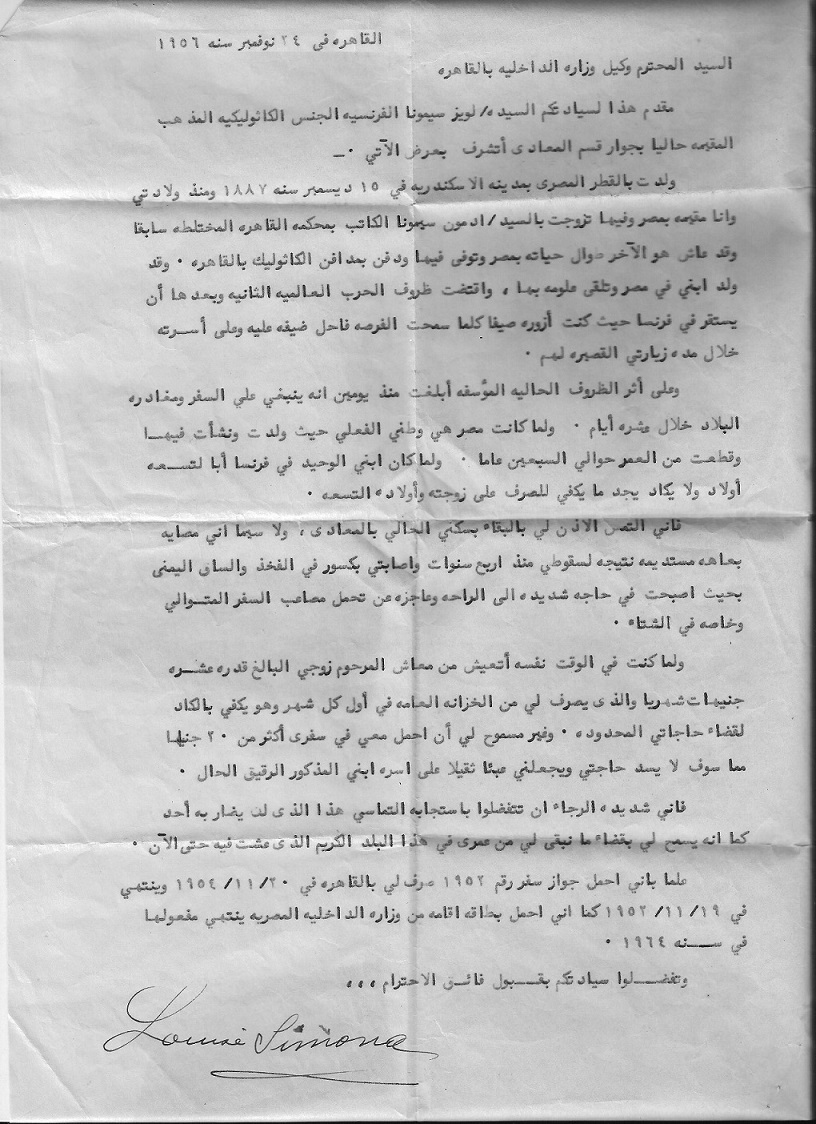 القاهره فى ٢٤ نوفمبر سنه ١٩٥٦
السيد المحترم وكيل وزاره الداخليه بالقاهره
مقدم هذا لسيادتكم السيده/ لويز سيمونا الفرنسيه الجنس الكاثوليكيه المذهب
المقيمه حاليا بجوار قسم المعادى أتشرف بعرض الآتي ٠ـ
ولدت بالقطر المصرى بمدينه الاسكندريه في ١٥ ديسمبر سنه ١٨٨٧ ومنذ ولادتي
وانا مقيمه بمصر وفيها تزوجت بالسيد/ ادمون سيمونا الكاتب بمحكمه القاهره المختلطه سابقا
وقد عاش هو الآخر طوال حياته بمصر وتوفى فيها ودفن بمدافن الكاثوليك بالقاهره ٠ وقد
ولد ابني في مصر وتلقى علومه بها ، واقتضت ظروف الحرب العالميه الثانيه وبعدها أن
يستقر في فرنسا حيث كنت أزوره صيفا كلما سمحت الفرصه فاحل ضيفه عليه وعلى أسـرته
خلال مده زيارتي القصيره لهم ٠
وعلى أثر الظروف الحاليه المؤسفه أبلغت منذ يومين انه ينبغي علي السفر ومغادره
البلاد خلال عشره أيام ٠ ولما كانت مصر هي وطني الفعلي حيث ولدت ونشأت فيهـا
وقطعت من العمر حوالي السبعين عاما ٠ ولما كان ابني الوحيد في فرنسا أبا لتسـعه
أولاد ولا يكاد يجد ما يكفي للصرف على زوجته وأولاده التسعه ٠
فاني التمس الاذن لي بالبقاء بسكني الحالي بالمعادى ، ولا سيما اني مصابه
بعاهه مستديمه نتيجه لسقوطي منذ اربع سنوات واصابتي بكسور في الفخذ والساق اليمنى
بحيث اصبحت في حاجه شديده الى الراحه وعاجزه عن تحمل مصاعب السفر المتـوالي
وخاصه في الشتاء ٠
ولما كنت في الوقت نفسه أتعيش من معاش المرحوم زوجي البالغ قدره عشـره
جنيهات شهريا والذى يصرف لي من الخزانه العامه في أول كل شهر وهو يكفي بالكاد
لقضاء حاجاتي المحدوده ٠ وغير مسموح لي أن احمل معي في سفرى أكثر من ٢٠ جنيها
مما سوف لا يسد حاجتي ويجعلني عبئا ثقيلا على اسره ابني المذكور الرقيق الحال ٠
فاني شديده الرجاء ان تتفضلوا باستجابه التماسي هذا الذى لن يضار به أحد
كما انه يسمح لي بقضاء ما تبقى لي من عمرى في هذا البلد الكريم الذى عشت فيه حتى الآن ٠
علما باني احمل جواز سفر رقم ١٩٥٢ صرف لي بالقاهره في ٢٠/ ١١/ ١٩٥٤ وينتهي
في ١٩/ ١١/ ١٩٥٢ كما اني احمل بطاقه اقامه من وزاره الداخليه المصريه ينتهي مفعولها
في سـنه ١٩٦٤ ٠
وتفضـلوا سيادتكم بقـبول فائـق الاحترام ،،،
Louise Simona